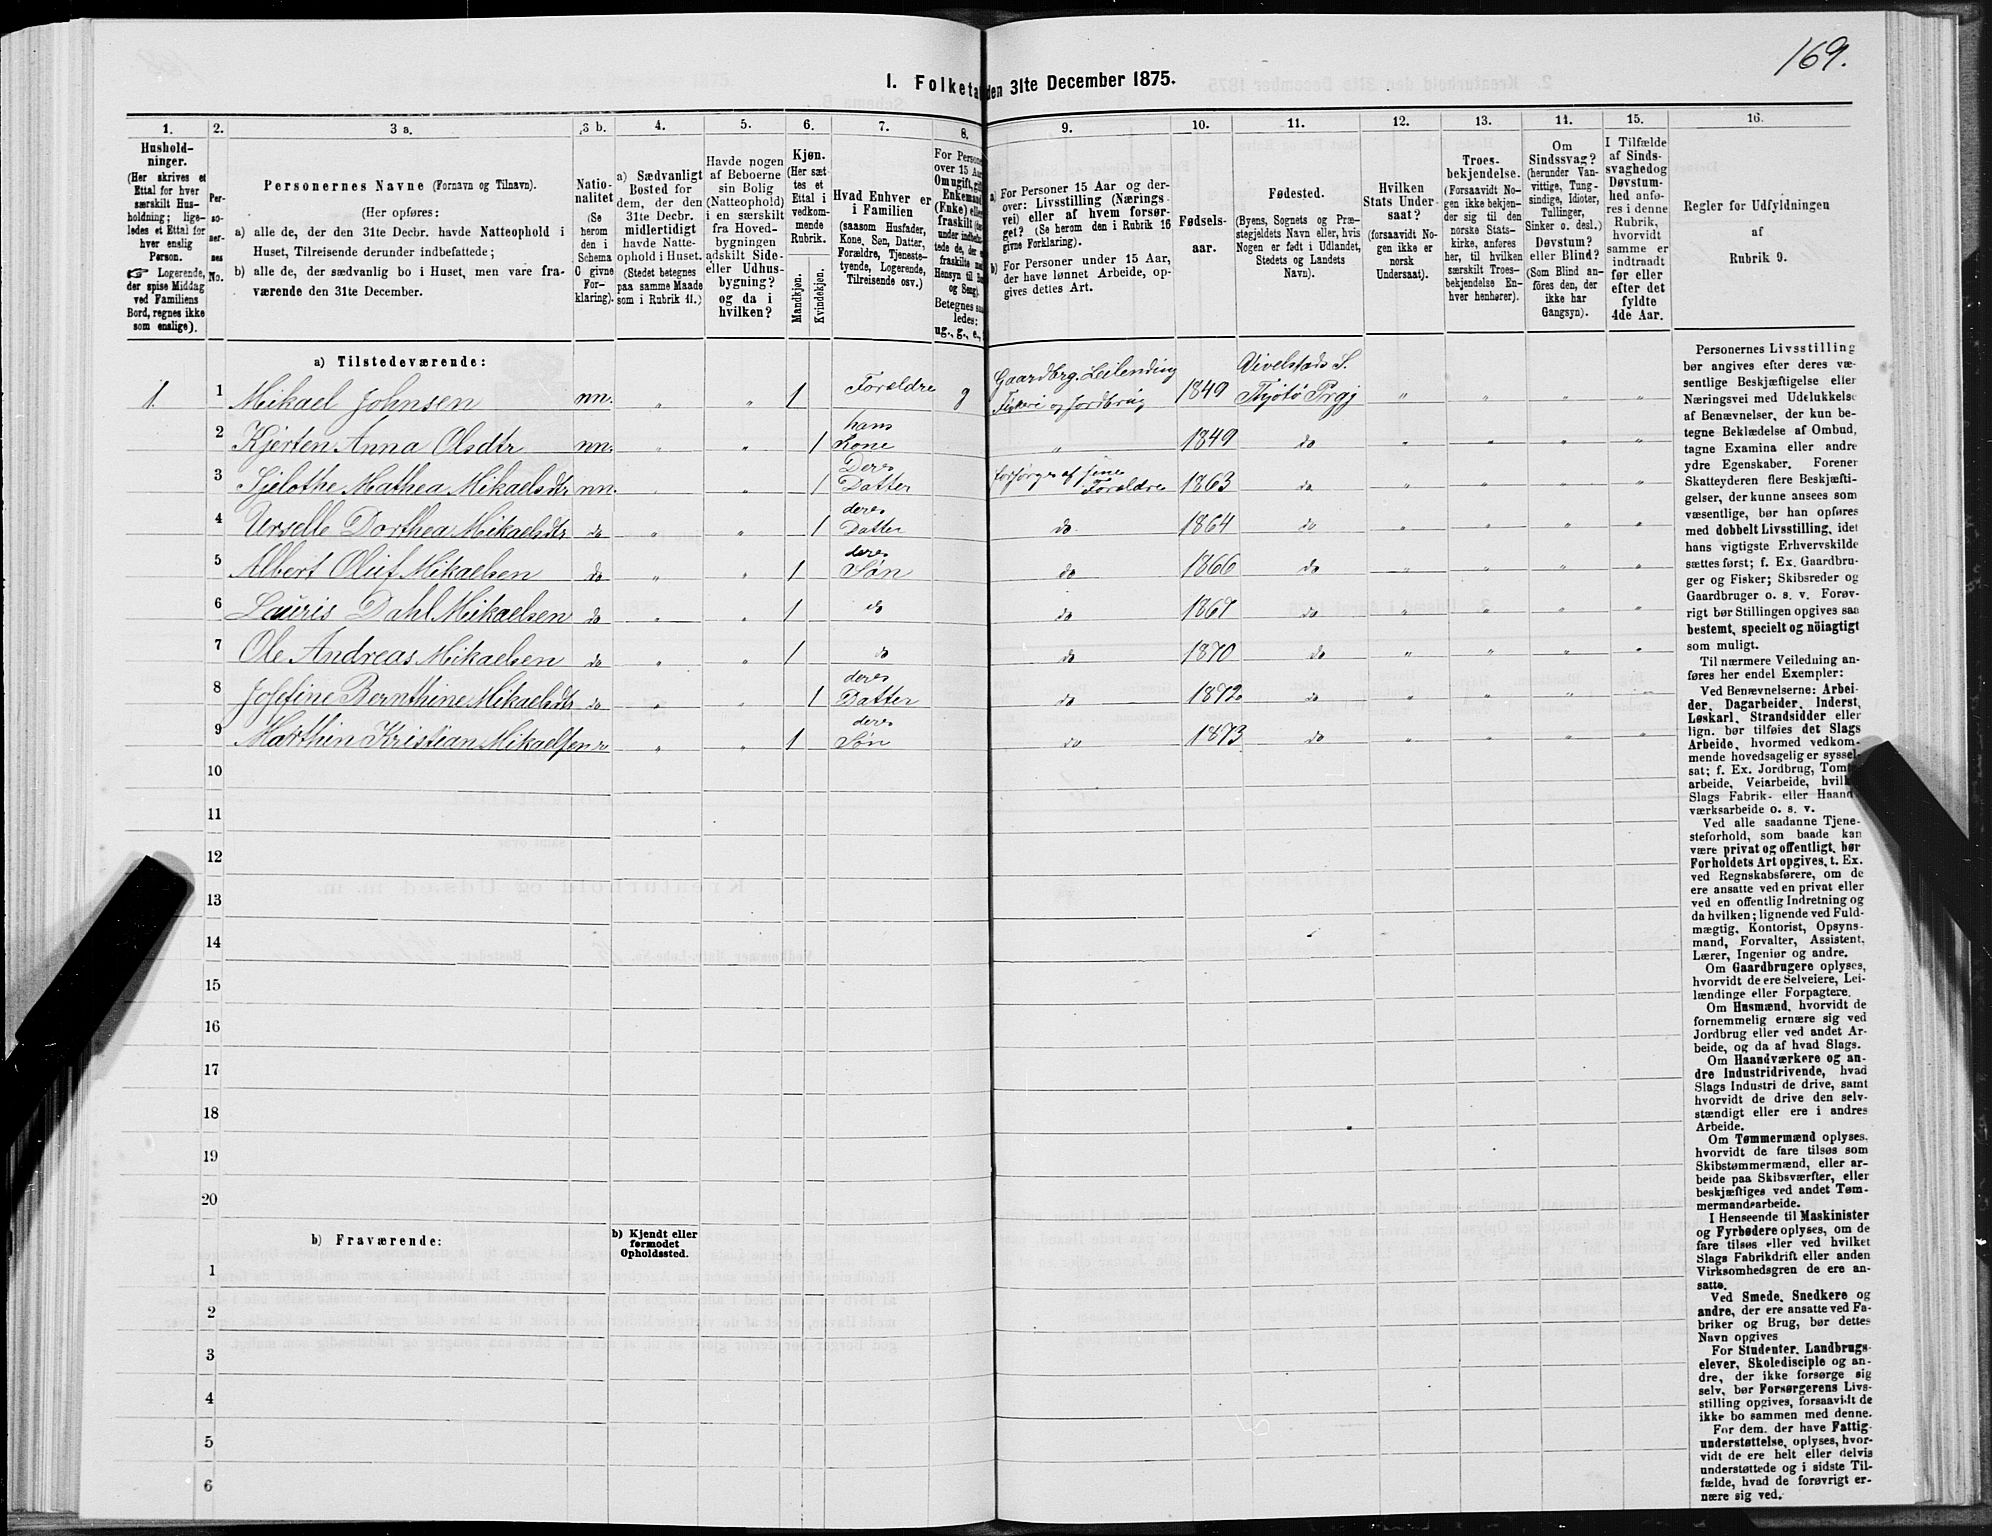 169.
I. Folketal den 31te December 1875.
1. 2. 3 a. 3 b. 4. 5. 6. 7. 8. 9. 10. 11. 12. 13. 14. 15. 16.
Hushold-
ninger.
(Her skrives et
Ettal for hver
særskilt Hus-
holdning; lige-
ledes et Ettal for
hver enslig
Person.
☞ Logerende,
der spise Middag
ved Familiens
Bord, regnes ikke
som enslige).
Per-
so-
ner-
nes
No.
Personernes Navne (Fornavn og Tilnavn).
(Her opføres:
a) alle de, der den 31te Decbr. havde Natteophold i
Huset, Tilreisende derunder indbefattede;
b) alle de, der sædvanlig bo i Huset, men vare fra-
værende den 31te December.
Natio-
nalitet
(Se
herom
den i
Schema
C givne
For-
klaring).
a) Sædvanligt
Bosted for
dem, der den
31te Decbr.
midlertidigt
havde Natte-
ophold i Huset.
(Stedet betegnes
paa samme Maade
som i Rubrik 11.)
Havde nogen
af Beboerne
sin Bolig
(Natteophold)
i en særskilt
fra Hoved-
bygningen
adskilt Side-
eller Udhus-
bygning?
og da i
hvilken?
Kjøn.
(Her sæt
tes et
Ettal i
vedkom-
mende
Rubrik.
Mandkjøn.
Kvindekjøn.
Hvad Enhver er
i Familien
(saasom Husfader,
Kone, Søn, Datter,
Forældre, Tjeneste-
tyende, Logerende,
Tilreisende osv.)
For Persone
over 15 Aar
Om ugift, gift
Enkemand
(Enke) elle
fraskilt
under indbefat-
tede de, der
fraskilte
Hensyn til
og Seng).
Betegnes saa
ledes:
ug., g., e.,
a) For Personer 15 Aar og der-
over: Livsstilling (Nærings-
vei) eller af hvem forsør-
get? (Se herom den i Rubrik 16
givne Forklaring).
b) For Personer under 15 Aar,
der have lønnet Arbeide, op-
gives dettes Art.
Fødsels-
aar.
Fødested.
(Byens, Sognets og Præ-
stegjeldets Navn eller, hvis
Nogen er født i Udlandet,
Stedets og Landets
Navn).
Hvilken
Stats Under-
saat?
(forsaavidt No-
gen ikke er
norsk
Undersaat).
Troes-
bekjendelse.
(Forsaavidt No-
gen ikke bekjen-
der sig til den
norske Stats-
kirke, anføres
her, til hvilken
særskilt Troes-
bekjendelse En-
hver henhører).
Om
Sindssvag?
(herunder Van-
vittige, Tung-
sindige, Idioter,
Tullinger,
Sinker o. desl.)
Døvstum?
eller Blind?
(Som Blind an-
føres den, der
ikke har
Gangsyn).
I Tilfælde
af Sinds-
svaghedog
Døvstum-
hed anfø-
res i denne
Rubrik,
hvorvidt
samme er
indtraadt
før eller
efter det
fyldte
4de Aar.
Regler for Udfyldningen
af
Rubrik 9.
a) Tilstedeværende:
1. 1 Mikael Johnsen nn. „ „ 1 Forældre g Gaardbrg. Leilending Fiskeri og Jordbrug 1849 Vivelstads S. Thjøtø Prgj „ „ „ „
2 Kjersten Anna Olsdtr nn. „ „ 1 hans Kone „ 1849 do „ „ „ „
3 Sjelothe Mathea Mikaelsdtr nn. „ „ 1 Deres Datter forsørges af sine Forældre 1863 do „ „ „ „
4 Urselle Dorthea Mikaelsdtr do „ „ 1 deres Datter do 1864 do „ „ „ „
5 Albert Oluf Mikaelsen do „ „ 1 deres Søn do 1866 do „ „ „ „
6 Lauris Dahl Mikaelsen do „ „ 1 do do 1867 do „ „ „ „
7 Ole Andreas Mikaelsen do „ „ 1 do do 1870 do „ „ „ „
8 Josefine Bernthine Mikaelsdtr do „ „ 1 deres Datter do 1872 do „ „ „ „
9 Marthin Kristian Mikaelsen do „ „ 1 deres Søn do 1873 do „ „ „ „
10
11
12
13
14
15
16
17
18
19
20
b) Fraværende:
b) Kjendt eller
formodet
Opholdssted.
1
2
3
4
5
6
Personernes Livsstilling
bør angives efter deres væ-
sentlige Beskjæftigelse eller
Næringsvei med Udelukkelse
af Benævnelser, der kun be-
tegne Beklædelse af Ombud,
tagne Examina eller andre
ydre Egenskaber. Forener
Skatteyderen flere Beskjæfti-
gelser, der kunne ansees som
væsentlige, bør han opføres
med dobbelt Livsstilling, idet
hans vigtigste Erhvervskilde
sættes først; f. Ex. Gaardbru-
ger og Fisker; Skibsreder og
Gaardbruger o. s. v. Forøv-
rigt bør Stillingen opgives saa
bestemt, specielt og nöiagtigt
som muligt.
Til nærmere Veiledning an-
føres her endel Exempler:
Ved Benævnelserne: Arbei-
der, Dagarbeider, Inderst,
Løskarl, Strandsidder eller
lign. bør tilføies det Slags
Arbeide, hvormed vedkom-
mende hovedsagelig er syssel-
sat; f. Ex. Jordbrug, Tomte-
arbeide, Veiarbeide, hvilket
Slags Fabrik- eller Haand-
værksarbeide o. s. v.
Ved alle saadanne Tjene-
steforhold, som baade kan
være privat og offentligt, bør
Forholdets Art opgives, t. Ex.
ved Regnskabsførere, om de
ere ansatte ved en privat eller
ved en offentlig Indretning og
da hvilken; lignende ved Fuld-
mægtig, Kontorist, Opsyns-
mand, Forvalter, Assistent,
Lærer, Ingeniør og andre.
Om Gaardbrugere oplyses,
hvorvidt de ere Selveiere, Lei-
lændinge eller Forpagtere.
Om Husmænd, hvorvidt de
fornemmelig ernære sig ved
Jordbrug eller ved andet Ar-
beide, og da af hvad Slags.
Om Haandværkere og an-
dre Industridrivende, hvad
Slags Industri de drive, samt
hvorvidt de drive den selv-
stændigt eller ere i andres
Arbeide.
Om Tømmermænd oplyses,
hvorvidt de fare tilsøs som
Skibstømmermænd, eller ar-
beide paa Skibsværfter, eller
beskjæftiges ved andet Tøm-
mermandsarbeide.
I Henseende til Maskinister
og Fyrbødere oplyses, om de
fare tilsøs eller ved hvilket
Slags Fabrikdrift eller anden
Virksomhedsgren de ere an-
satte.
Ved Smede, Snedkere og
andre, der ere ansatte ved Fa-
briker og Brug, bør dettes
Navn opgives
For Studenter, Landbrugs-
elever, Skoledisciple og an-
dre, der ikke forsørge sig
selv, bør Forsørgerens Livs-
stilling opgives, forsaavidt de
ikke bo sammen med denne.
For dem, der have Fattig-
understøttelse, oplyses, hvor-
vidt de ere helt eller delvis
understøttede og i sidste Til-
fælde, hvad de forøvrigt er-
nære sig ved.